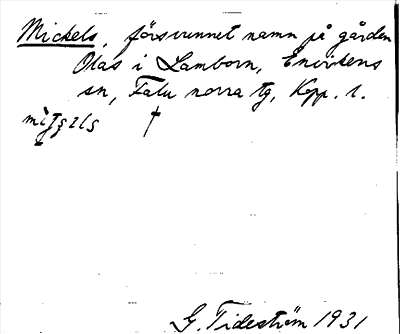 Mickels, försvunnet namn på gården
Olas i Lamborn, Envikens
sn, Falu norra tg, Kopp. l.
†
G. Tideström 1931